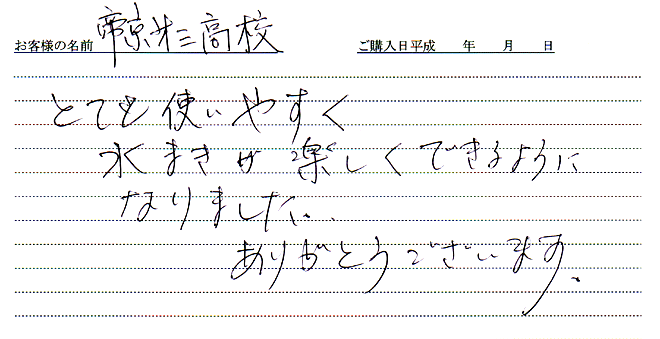 お客様の名前 帝京第三高校 ご購入日平成 年 月 日
とても使いやすく
水まきが楽しくできるように
なりました。
ありがとうございます。